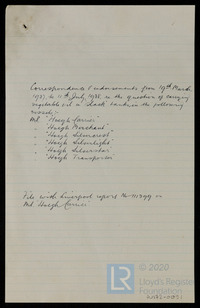 Correspondence & endorsements from 29th March
1927, to 11th July, 1928 on the question of carrying
vegetable oil in slack tanks in the following
vessels:-
MV "Haigh Carrier"
" "Haigh Merchant"
" "Haigh Silvercrest"
" "Haigh Silverlight"
" "Haigh Silverstar"
" "Haigh Transporter"
File with Liverpool report No on
MV Haigh Carrier
© 2020
LR
Lloyd's Register
Foundation